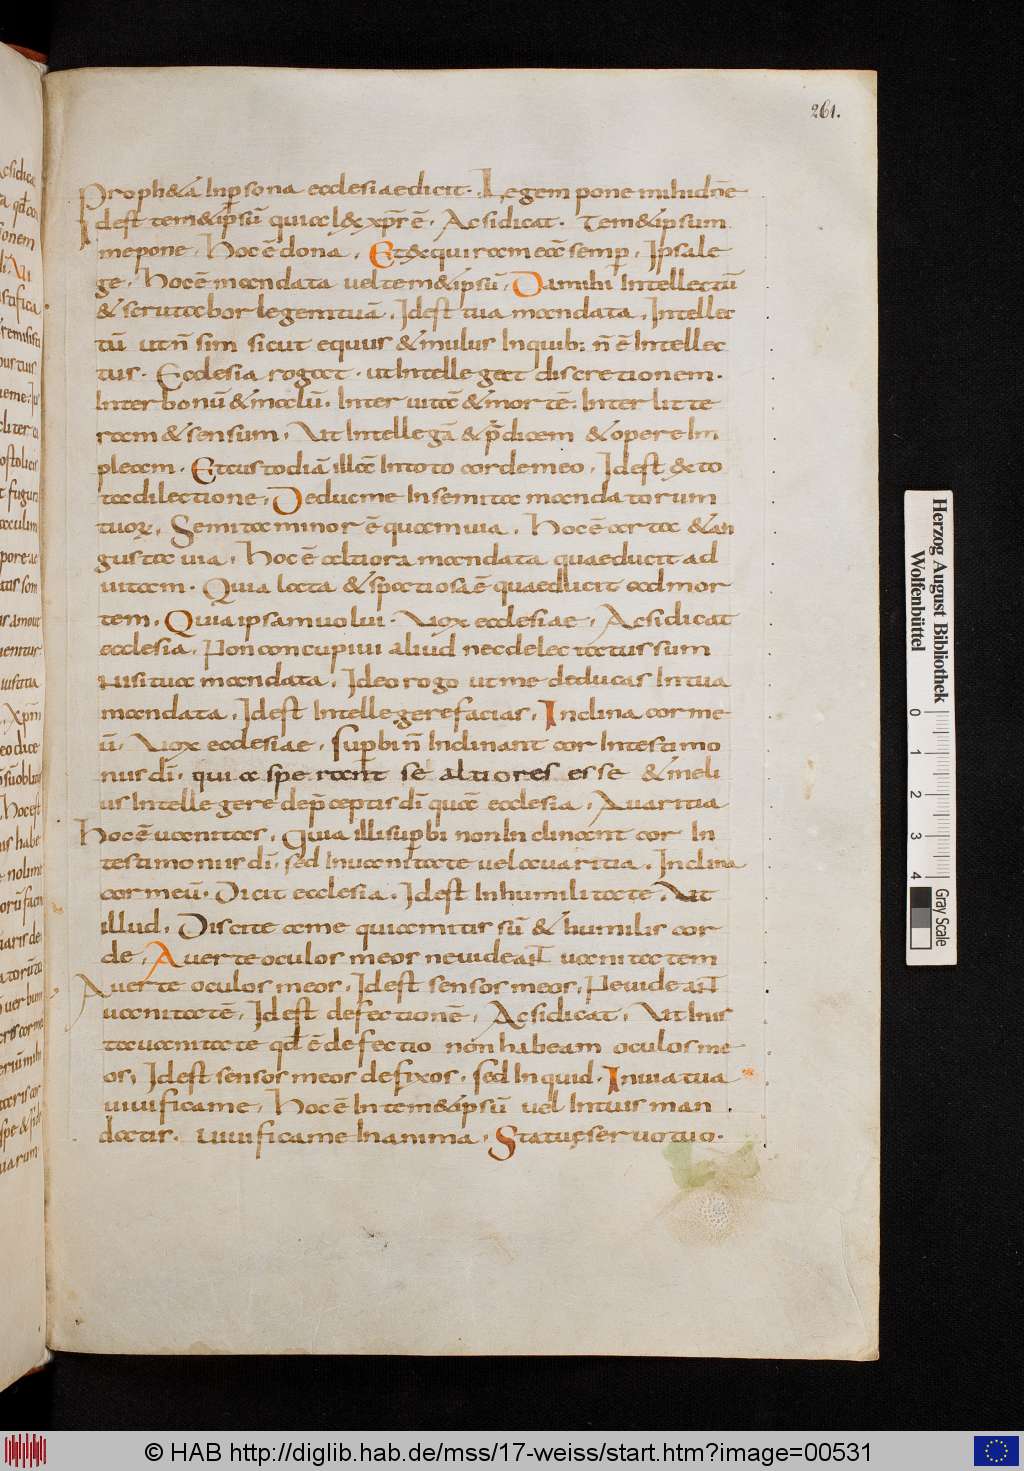 261.
Proph&a Inpsona ecclesiae dicit. Legem pone mihi dn̄e
Idest tem&ipsū quia l&x xp̄r ē. Acsidicat. Tem&ipsum
mepone. Hoc ē dona. Et&xquiram eā semp. Ipsa le
ge. Hoc ē mandata uel tem&ipsū. Damihi Intellectū
& scrutabor legemtuā. Idest tua mandata. Intellec
tū ut n̄ sim sicut equus & mulus Inquib: n̄ ē Intellec
tus. Ecclesia rogat. ut Intellegat discretionem.
Inter bonū & malū. Inter uitā & mortē. Inter litte
ram & sensum. Ut Intellegā & p̄dicem & opere Im
pleam. Etcustodiā illā Intoto corde meo. Idest &to
ta dilectione. Deducme Insemita mandatorum
tuoꝝ. Semita minor ē quam uia. Hoc ē arta & an
gusta uia. Hoc ē altiora mandata quaeducit ad
uitam. Quia lata & spatiosa ē quaeducit ad mor
tem. Quia ipsam uolui. Uox ecclesiae. Acsidicat
ecclesia. Non concupiui aliud nec delectatus sum
nisi tua mandata. Ideo rogo ut me deducas Intua
mandata. Idest Intellegere facias. Inclina cor me
ū. Uox ecclesiae. supbi n̄ Inclinant cor Intestimo
niis dī. quia sperant se altiores esse & meli
us Intellegere dep̄ceptis dī quā ecclesia. Auaritia
Hoc ē uanitas. Quia illi supbi non Inclinant cor In
testimoniis dī. sed Inuanitate uel auaritia. Inclina
cor meū. Dicit ecclesia. Idest Inhumilitate. Ut
illud. Discite ame quia mitis sū & humilis cor
de. Auerte oculos meos ne uideaNT uanitatem
Auerte oculos meos. Idest sensos meos. Ne uideaNT
uanitatē. Idest defectionē. Acsidicat. Ut Inis
ta uanitate qđ ē defectio non habeam oculos me
os. Idest sensos meos defixos. sed Inquid. Inuia tua
uiuificame. Hoc ē Intem&ipsū uel Intuis man
datis. uiuificame Inanima. Statue seruo tuo.
Herzog August Bibliothek
Wolfenbüttel
0 1 2 3 4
Gray Scale
© HAB http://diglib.hab.de/mss/17-weiss/start.htm?image=00531